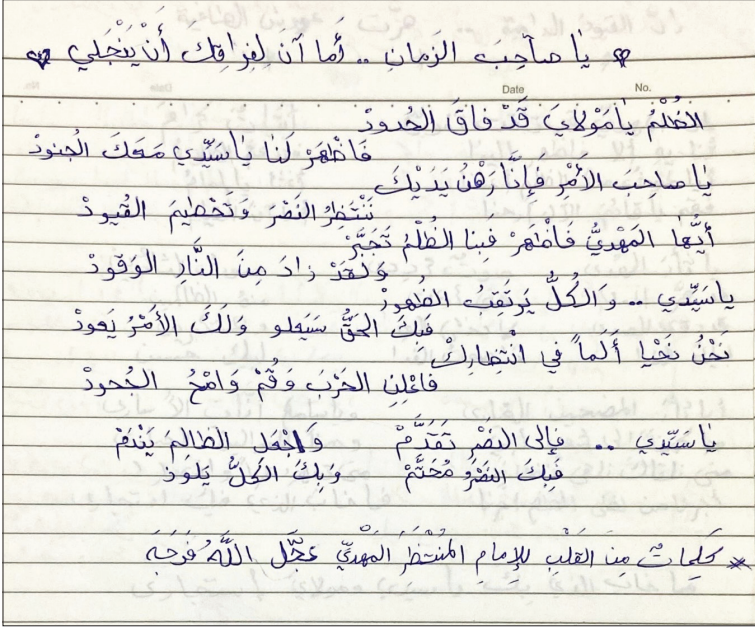 ♡ يا صاحِبَ الزَمانِ .. أَما آنَ لِفِراقِكَ أَنْ يَنْجَلي ♡
Date No.
الظُلْمُ يامَوْلايَ قَدْ فاقَ الحُدودْ
فَاظْهَرْ لَنا ياسَيِّدي مَعَكَ الجُنودْ
يا صاحِبَ الأَمْرِ فَإِنَّا رَهْنُ يَدَيْكَ
نَنْتَظِرُ النَصْرَ وَتَحْطِيمَ القُيودْ
أَيُّها المَهْدِيُّ فَاظْهَرْ فَبِنا الظُلْمُ تَجَبَّرْ
وَلَقَدْ زادَ مِنَ النَّارِ الوَقودْ
ياسَيِّدي .. وَالكُلُّ يَرتَقِبُ الظُهودْ
فَبِكَ الحَقُّ سَيَعلو وَلَكَ الأَمْرُ يَعودْ
نَحْنُ نَحْيا أَلَماً في انْتِظارِكْ
فَاعْلِنِ الحَرْبَ وَقُمْ وَامْحُ الجُحودْ
ياسَيِّدي .. فَإِلى النَصْرِ تَقَدَّمْ وَاجْعَلِ الظالِمَ يَنْدَمْ
فَبِكَ النَصْرُ مُحَتَّمْ وَبِكَ الكُلُّ يَلوذْ
* كَلِماتٌ مِنَ القَلْبِ لِلإِمامِ المُنْتَظَرِ المَهْدِيِّ عَجَّلَ اللَّهُ فَرَجَهُ